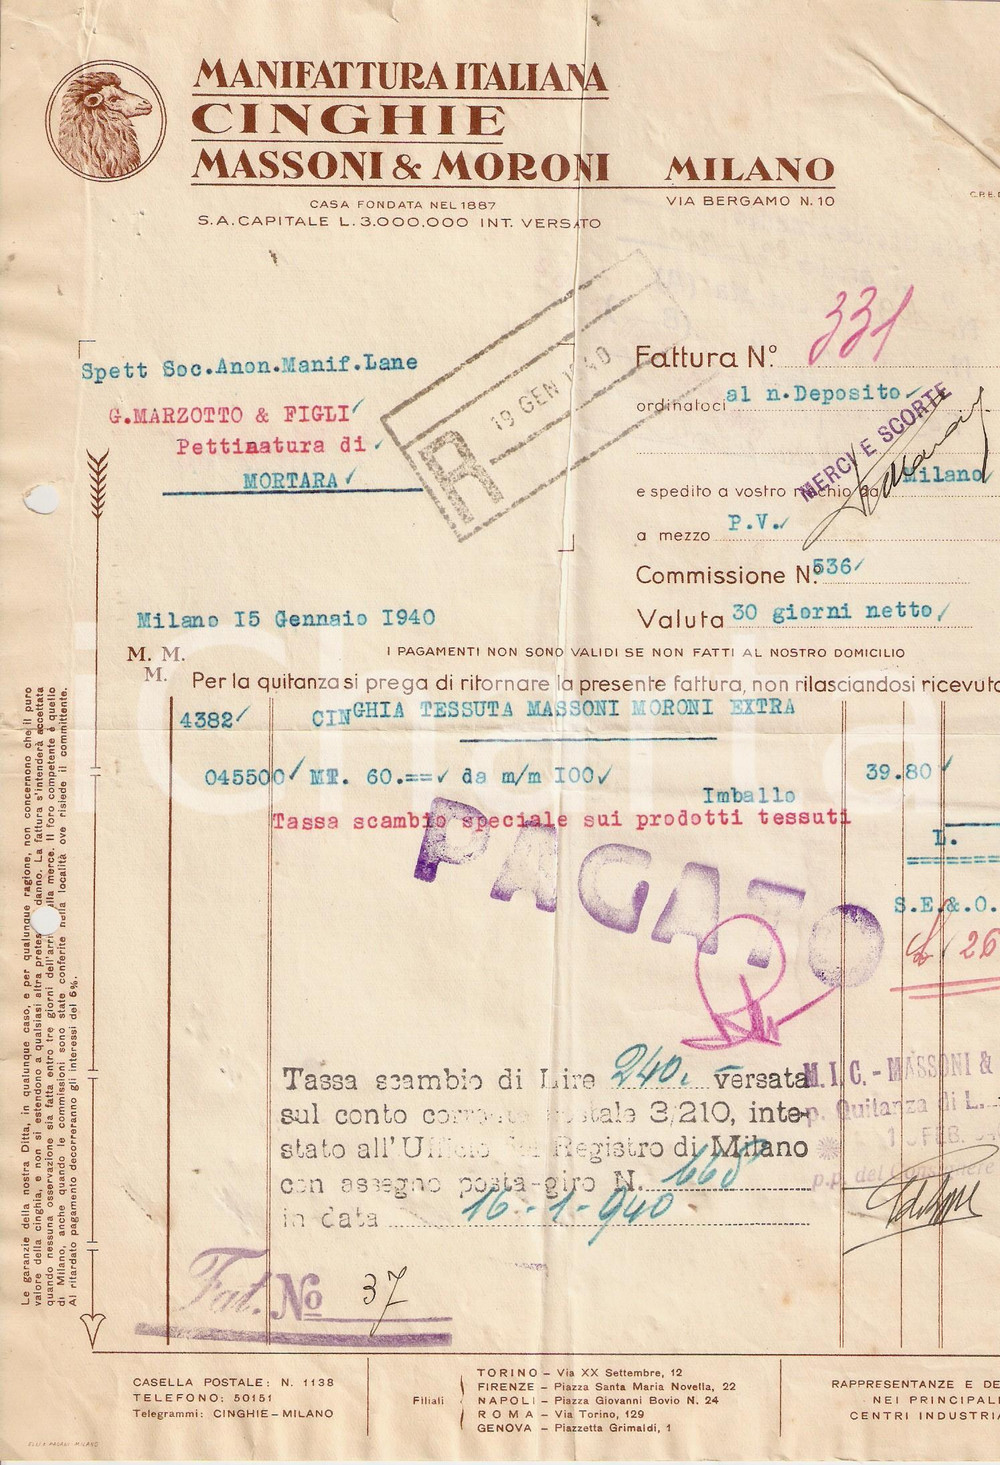 MANIFATTURA ITALIANA
CINGHIE
MASSONI & MORONI MILANO
CASA FONDATA NEL 1887
S.A. CAPITALE L. 3.000.000 INT. VERSATO
VIA BERGAMO N. 10
C.P.E.
Spett Soc.Anon.Manif.Lane
G.MARZOTTO & FIGLI
Pettinatura di
MORTARA
R 19 GEN 1940
Fattura N.° 331
ordinatoci al n.Deposito
MERCI E SCORTE
e spedito a vostro rischio da Milano
a mezzo P.V.
Commissione N.° 536
Valuta 30 giorni netto
Milano I5 Gennaio I940
M. M.
M.
I PAGAMENTI NON SONO VALIDI SE NON FATTI AL NOSTRO DOMICILIO
Per la quitanza si prega di ritornare la presente fattura, non rilasciandosi ricevuta
4382 CINGHIA TESSUTA MASSONI MORONI EXTRA
045500 MT. 60.== da m/m I00 39.80
Imballo
Tassa scambio speciale sui prodotti tessuti
L.
PAGATO
S.E.&.O.
£ 26
Tassa scambio di Lire 240. versata
sul conto corrente postale 3/210, inte-
stato all'Ufficio del Registro di Milano
con assegno posta-giro N. 668
in data 16-1-940
M.I.C. - MASSONI &
p. Quitanza di L.
FEB.
p.p. del Consigliere
Fat. No 37
Le garanzie della nostra Ditta, in qualunque caso, e per qualunque ragione, non concernono che il puro
valore della cinghia, e non si estendono a qualsiasi altra pretesa danno. La fattura s'intenderà accettata
quando nessuna osservazione sia fatta entro tre giorni dell'arri lla merce. Il foro competente è quello
di Milano, anche quando le commissioni sono state conferite nella località ove risiede il committente.
Al ritardato pagamento decorreranno gli interessi del 6%.
CASELLA POSTALE: N. 1138
TELEFONO: 50151
Telegrammi: CINGHIE - MILANO
Filiali
TORINO - Via XX Settembre, 12
FIRENZE - Piazza Santa Maria Novella, 22
NAPOLI - Piazza Giovanni Bovio N. 24
ROMA - Via Torino, 129
GENOVA - Piazzetta Grimaldi, 1
RAPPRESENTANZE E DE
NEI PRINCIPALI
CENTRI INDUSTRIA